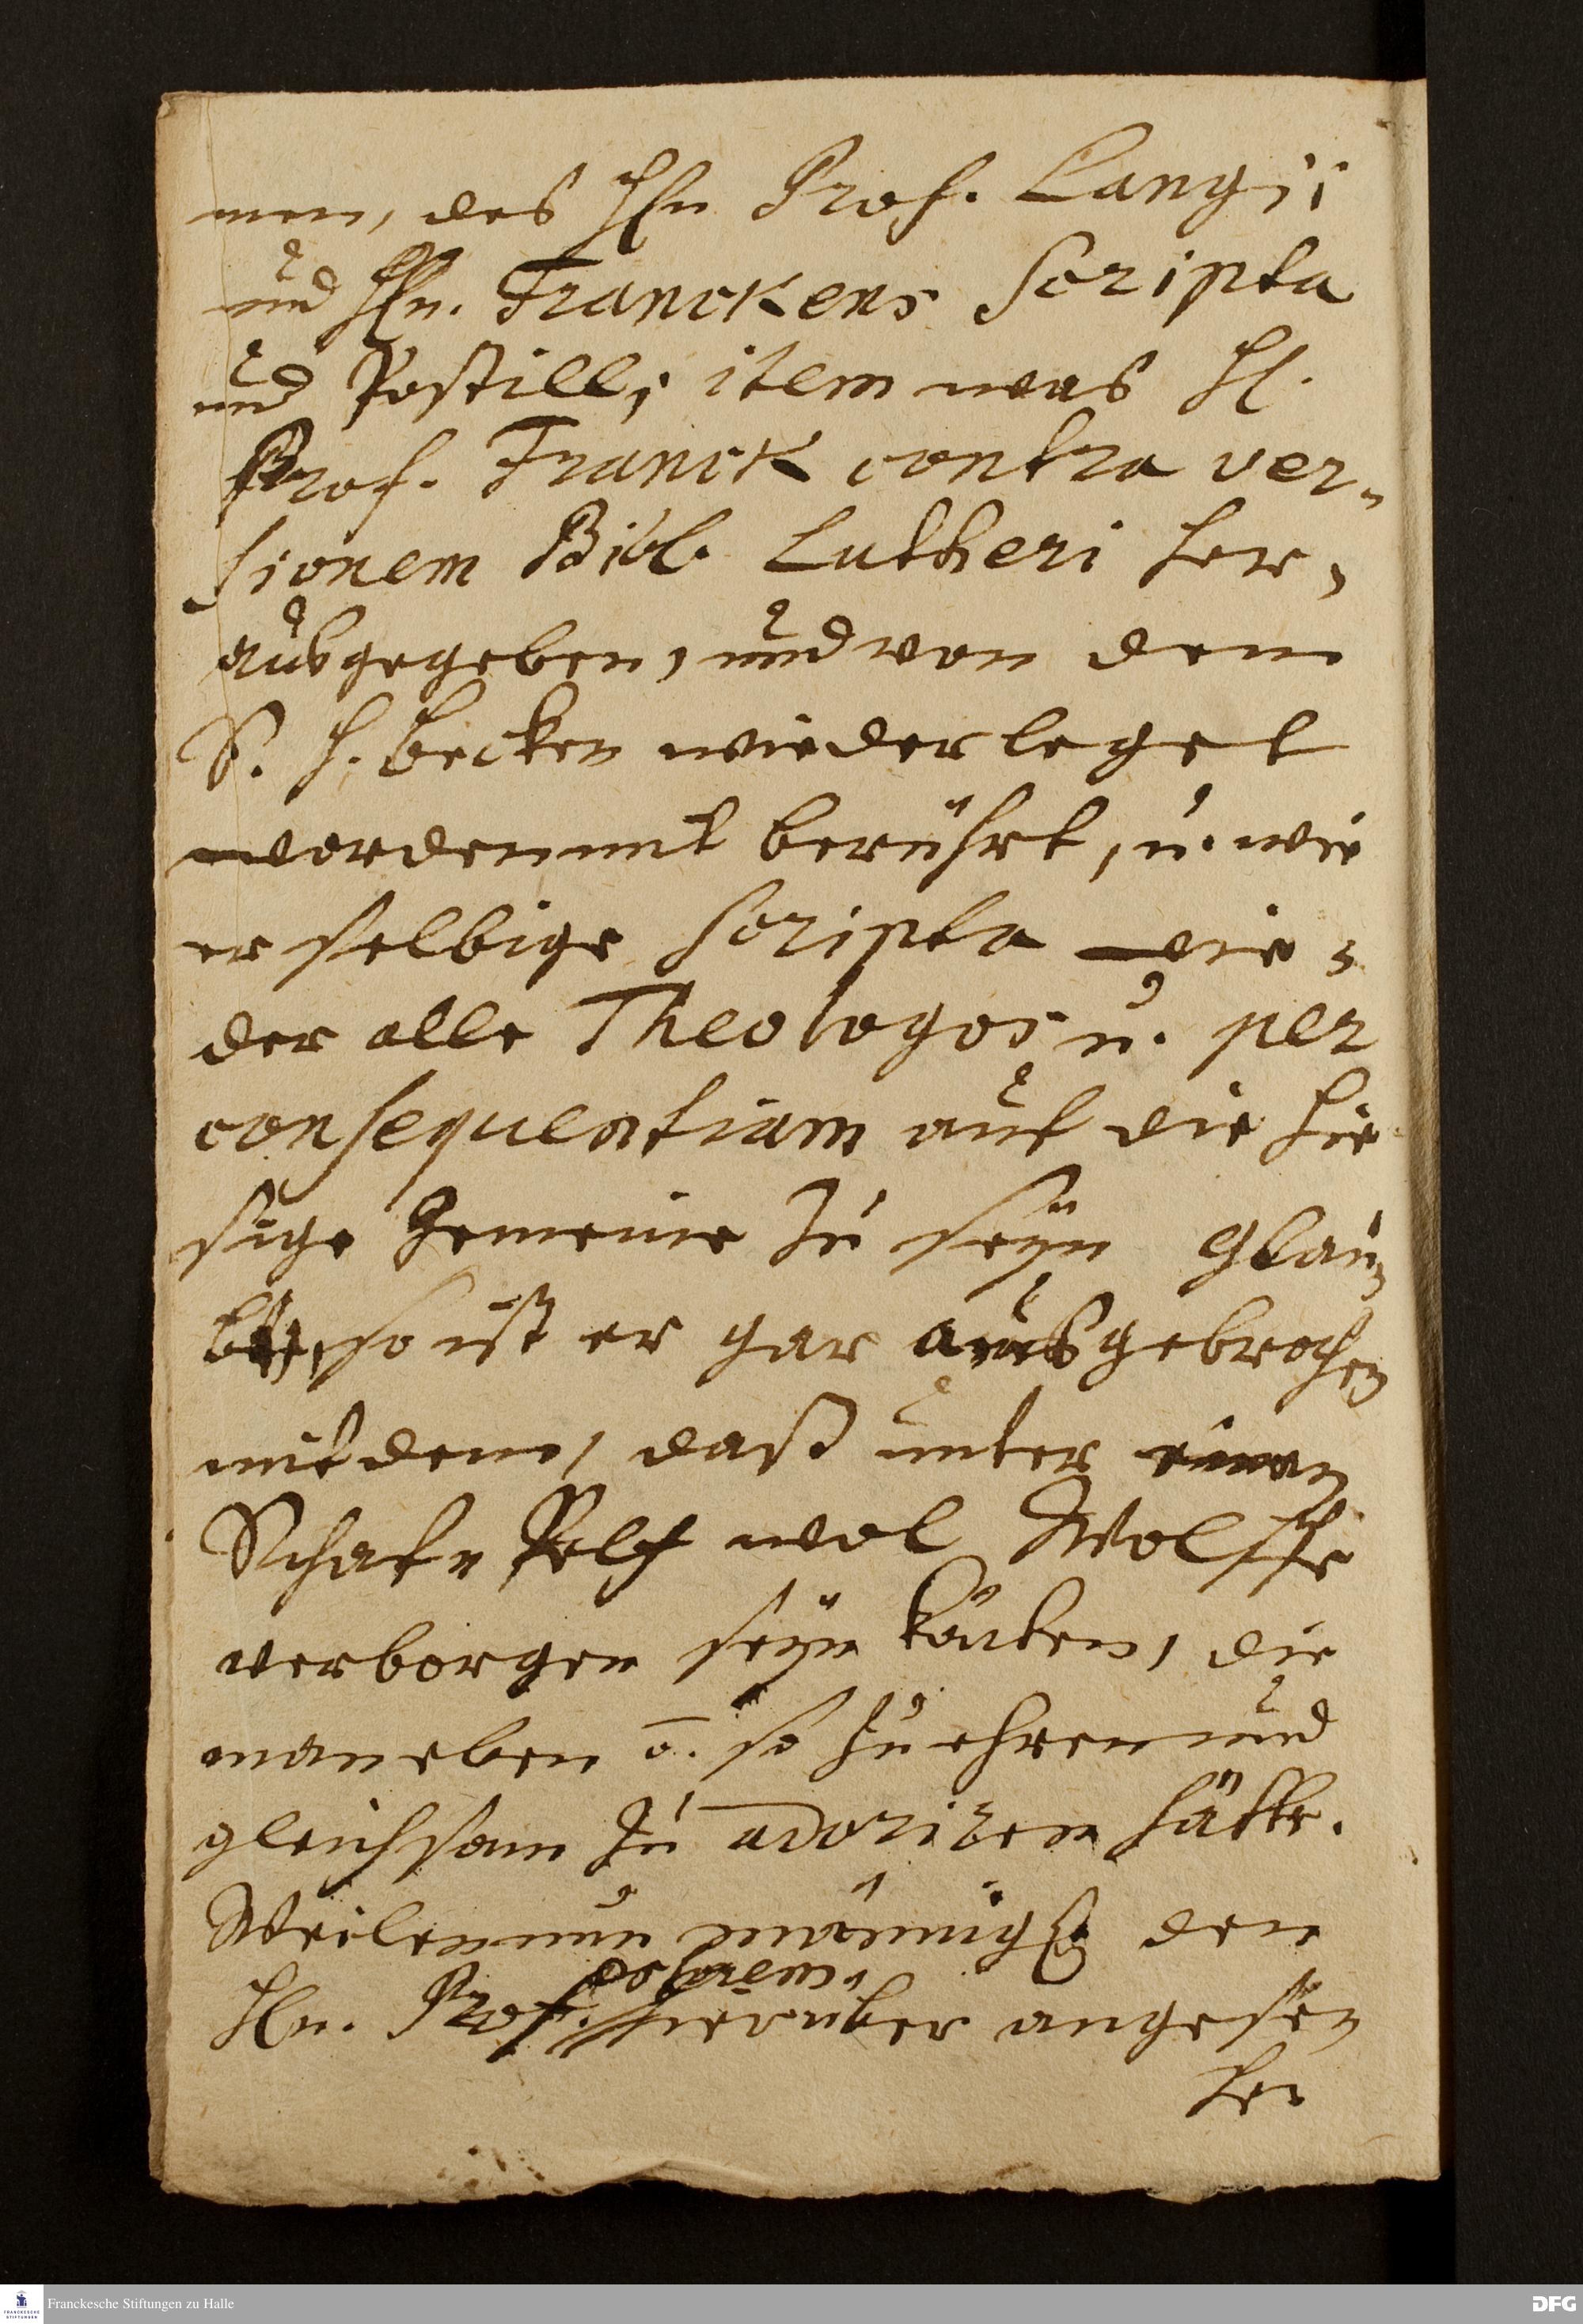 men, des Hhn Prof. Langii
und Hhn. Franckens Scripta
und Postill, item was H.
Prof. Franck contra ver-
sionem Bibl. Lutheri her-
ausgegeben, und von dem
S. H. Becken wiederleget
worden mit berührt, u. wie
er selbige Scripta wie-
der alle Theologos u. per
consequentiam auf die hie
sige Gemeine zu seyn glau-
bet, so ist er gar ausgebrochen
mit dem, daß unter einen
Schafs Peltz wol Wolffe
verborgen seyn könten, die
man eben so zu ehren und
gleichsam zu adoriren hätte.
Weilen nun männigl. den
Hn. Professorem hierüber angese-
hen
Franckesche Stiftungen zu Halle
DFG